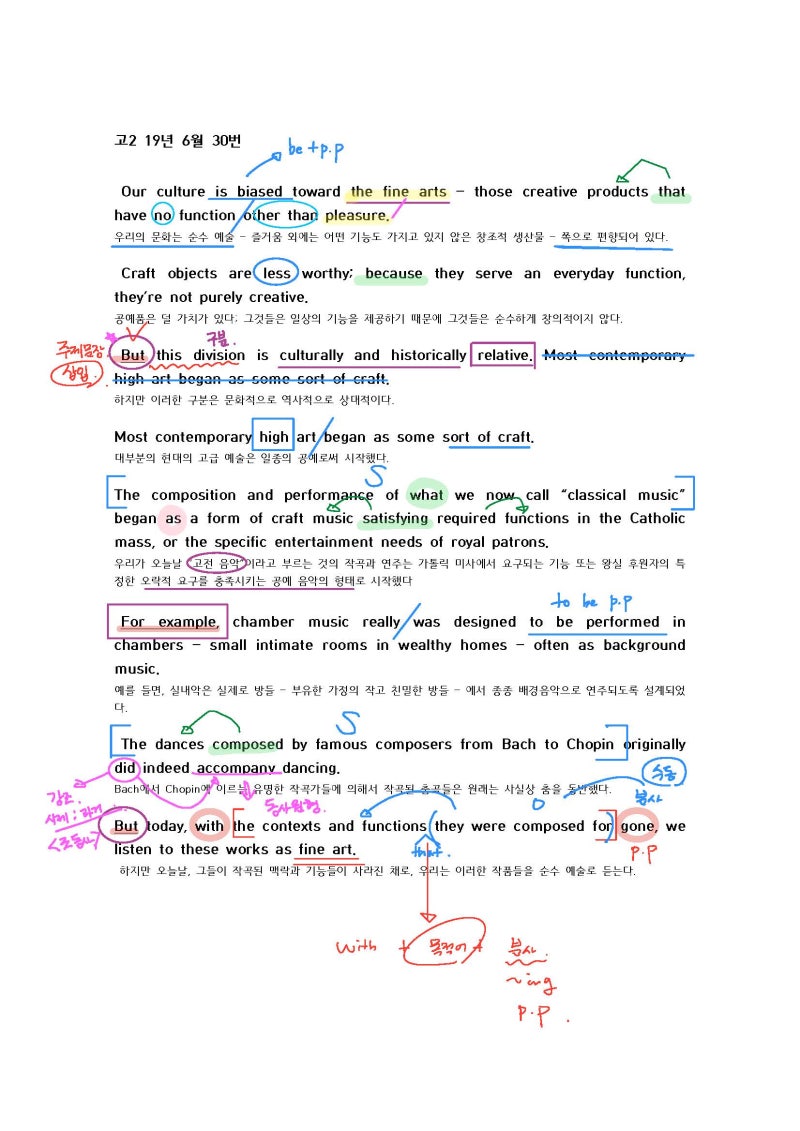 고2 19년 6월 30번
be + p.p
Our culture is biased toward the fine arts – those creative products that
have no function other than pleasure.
우리의 문화는 순수 예술 – 즐거움 외에는 어떤 기능도 가지고 있지 않은 창조적 생산물 – 쪽으로 편향되어 있다.
Craft objects are less worthy; because they serve an everyday function,
they're not purely creative.
공예품은 덜 가치가 있다; 그것들은 일상의 기능을 제공하기 때문에 그것들은 순수하게 창의적이지 않다.
구분.
주제문장
삽입.
But this division is culturally and historically relative. Most contemporary
high art began as some sort of craft.
하지만 이러한 구분은 문화적으로 역사적으로 상대적이다.
Most contemporary high art began as some sort of craft.
대부분의 현대의 고급 예술은 일종의 공예로써 시작했다.
S
The composition and performance of what we now call “classical music”
began as a form of craft music satisfying required functions in the Catholic
mass, or the specific entertainment needs of royal patrons.
우리가 오늘날 “고전 음악”이라고 부르는 것의 작곡과 연주는 가톨릭 미사에서 요구되는 기능 또는 왕실 후원자의 특
정한 오락적 요구를 충족시키는 공예 음악의 형태로 시작했다
to be p.p
For example, chamber music really was designed to be performed in
chambers – small intimate rooms in wealthy homes – often as background
music.
예를 들면, 실내악은 실제로 방들 – 부유한 가정의 작고 친밀한 방들 – 에서 종종 배경음악으로 연주되도록 설계되었
다.
S
The dances composed by famous composers from Bach to Chopin originally
did indeed accompany dancing.
수동
Bach에서 Chopin에 이르는 유명한 작곡가들에 의해서 작곡된 춤곡들은 원래는 사실상 춤을 동반했다.
강조.
동사원형.
O
분사
시제 : 과거
<조동사>
But today, with the contexts and functions they were composed for gone, we
that.
p.p
listen to these works as fine art.
하지만 오늘날, 그들이 작곡된 맥락과 기능들이 사라진 채로, 우리는 이러한 작품들을 순수 예술로 듣는다.
with + 목적어 + 분사.
~ing
p.p.